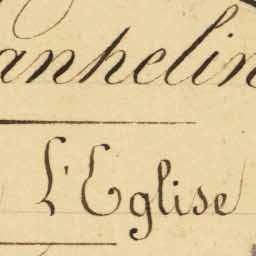 anhelin
L'Eglise